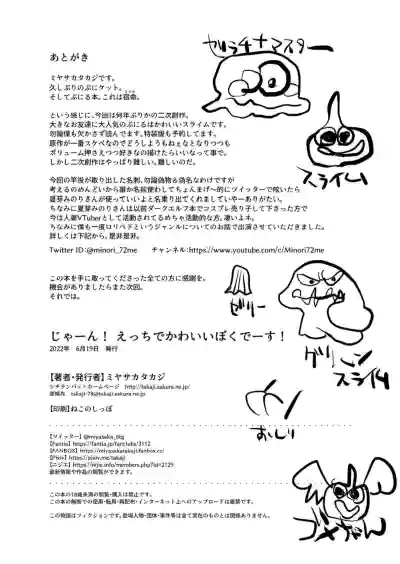 ゼラチナマスター
あとがき
ミヤサカタカジです。
久しぶりのぷにケット。
そしてぷにる本。これは宿命。
という感じに、今回は何年ぶりかの二次創作。
大きなお友達に大人気のぷにるはかわいいスライムです。
勿論僕も欠かさず読んでます。特装版も予約してます。
原作が一番スケベなのでどうしようもねぇなとなりつつも
ボリューム押さえつつ好きなの描けたらいいなって事で。
しかし二次創作はやっぱり難しい。難しいのだ。
スライム
今回の竿役が取り出した名刺、勿論偽物&偽名なわけですが
考えるのめんどいから誰か名前使わしてちょんまげ〜的にツイッターで呟いたら
夏芽みのりさんが使っていいよと名乗り出てくれましていやーありがたい。
ちなみに夏芽みのりさんは以前ダークエルフ本でコスプレ売り子して下さった方で
今は人妻VTuberとして活動されてるめちゃ活動的な方。凄いよネ。
ちなみに僕も一度ロリペドというジャンルについてのお話で出演させていただきました。
詳しくは下記から。是非是非。
Twitter ID:@minori_72me チャンネル:https://www.youtube.com/c/Minori72me
この本を手に取ってくださった全ての方に感謝を。
機会がありましたらまた次回。
それでは。
ゼリー
じゃーん! えっちでかわいいぼくでーす!
2022年 6月19日 発行
グリーンスライム
【著者・発行者】ミヤサカタカジ
シチテンバットホームページ http://takaji.sakura.ne.jp/
連絡先 takaji-78@takaji.sakura.ne.jp
【印刷】ねこのしっぽ
おしり
【ツイッター】@miyasaka_tkg
【Fantia】https://fantia.jp/fanclubs/3112
【FANBOX】https://miyasakatakaji.fanbox.cc/
【Pixiv】https://pixiv.me/takaji
【ニジエ】https://nijie.info/members.php?id=2129
最新情報や作品の閲覧ができます。
この本の18歳未満の閲覧・購入は禁止です。
この本の無断での使用・転用・再配布・インターネット上へのアップロードは厳禁です。
この物語はフィクションです。登場人物・団体・事件等は全て実在のものとは関係ありません。